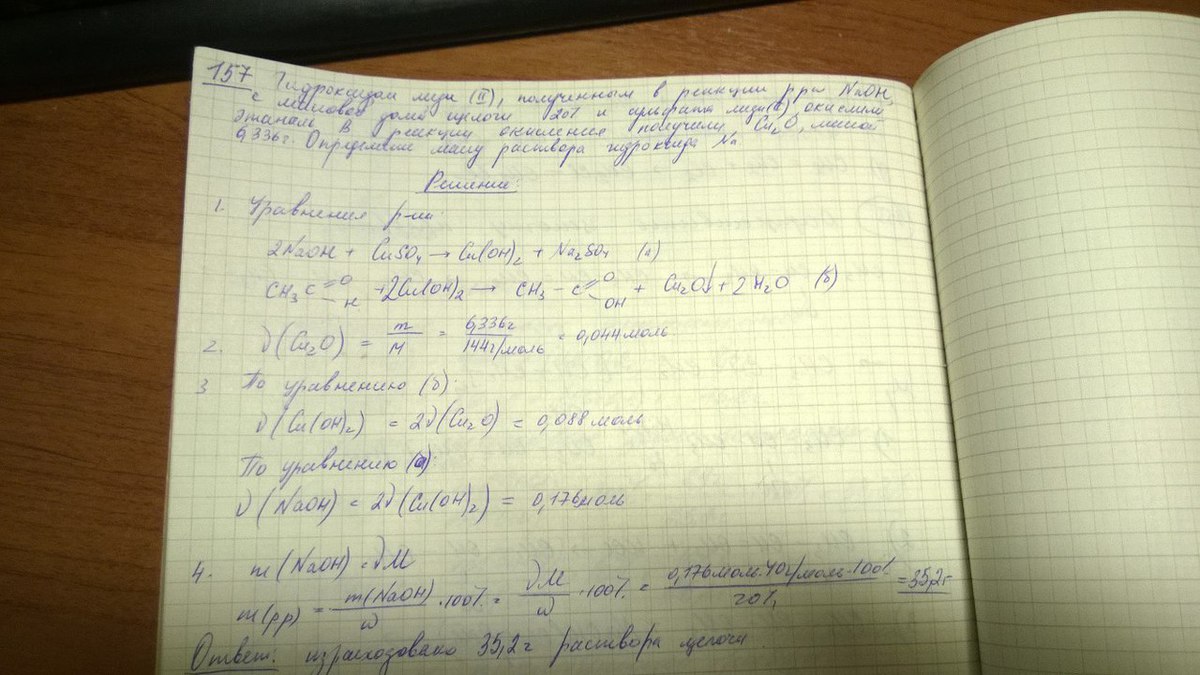 157 Гидроксидом меди (II), полученным в реакции р-ра NaOH,
с массовой долей щелочи 20% и сульфата меди(II) окислили
этаналь. В реакции окисления получили Cu₂O, массой
6,336г. Определите массу раствора гидроксида Na.
Решение:
1. Уравнения р-ии:
2NaOH + CuSO₄ → Cu(OH)₂ + Na₂SO₄ (а)
CH₃ C =O H + 2Cu(OH)₂ → CH₃ - C =O OH + Cu₂O↓ + 2H₂O (б)
2. ν(Cu₂O) = m/M = 6,336г/144г/моль = 0,044моль
3 По уравнению (б):
ν(Cu(OH)₂) = 2ν(Cu₂O) = 0,088 моль
По уравнению (а):
ν(NaOH) = 2ν(Cu(OH)₂) = 0,176моль
4. m(NaOH) = νM
m(рр) = m(NaOH)/ω · 100% = νM/ω · 100% = 0,176моль·40г/моль·100%/20% = 35,2г
Ответ: израсходовано 35,2г раствора щелочи.